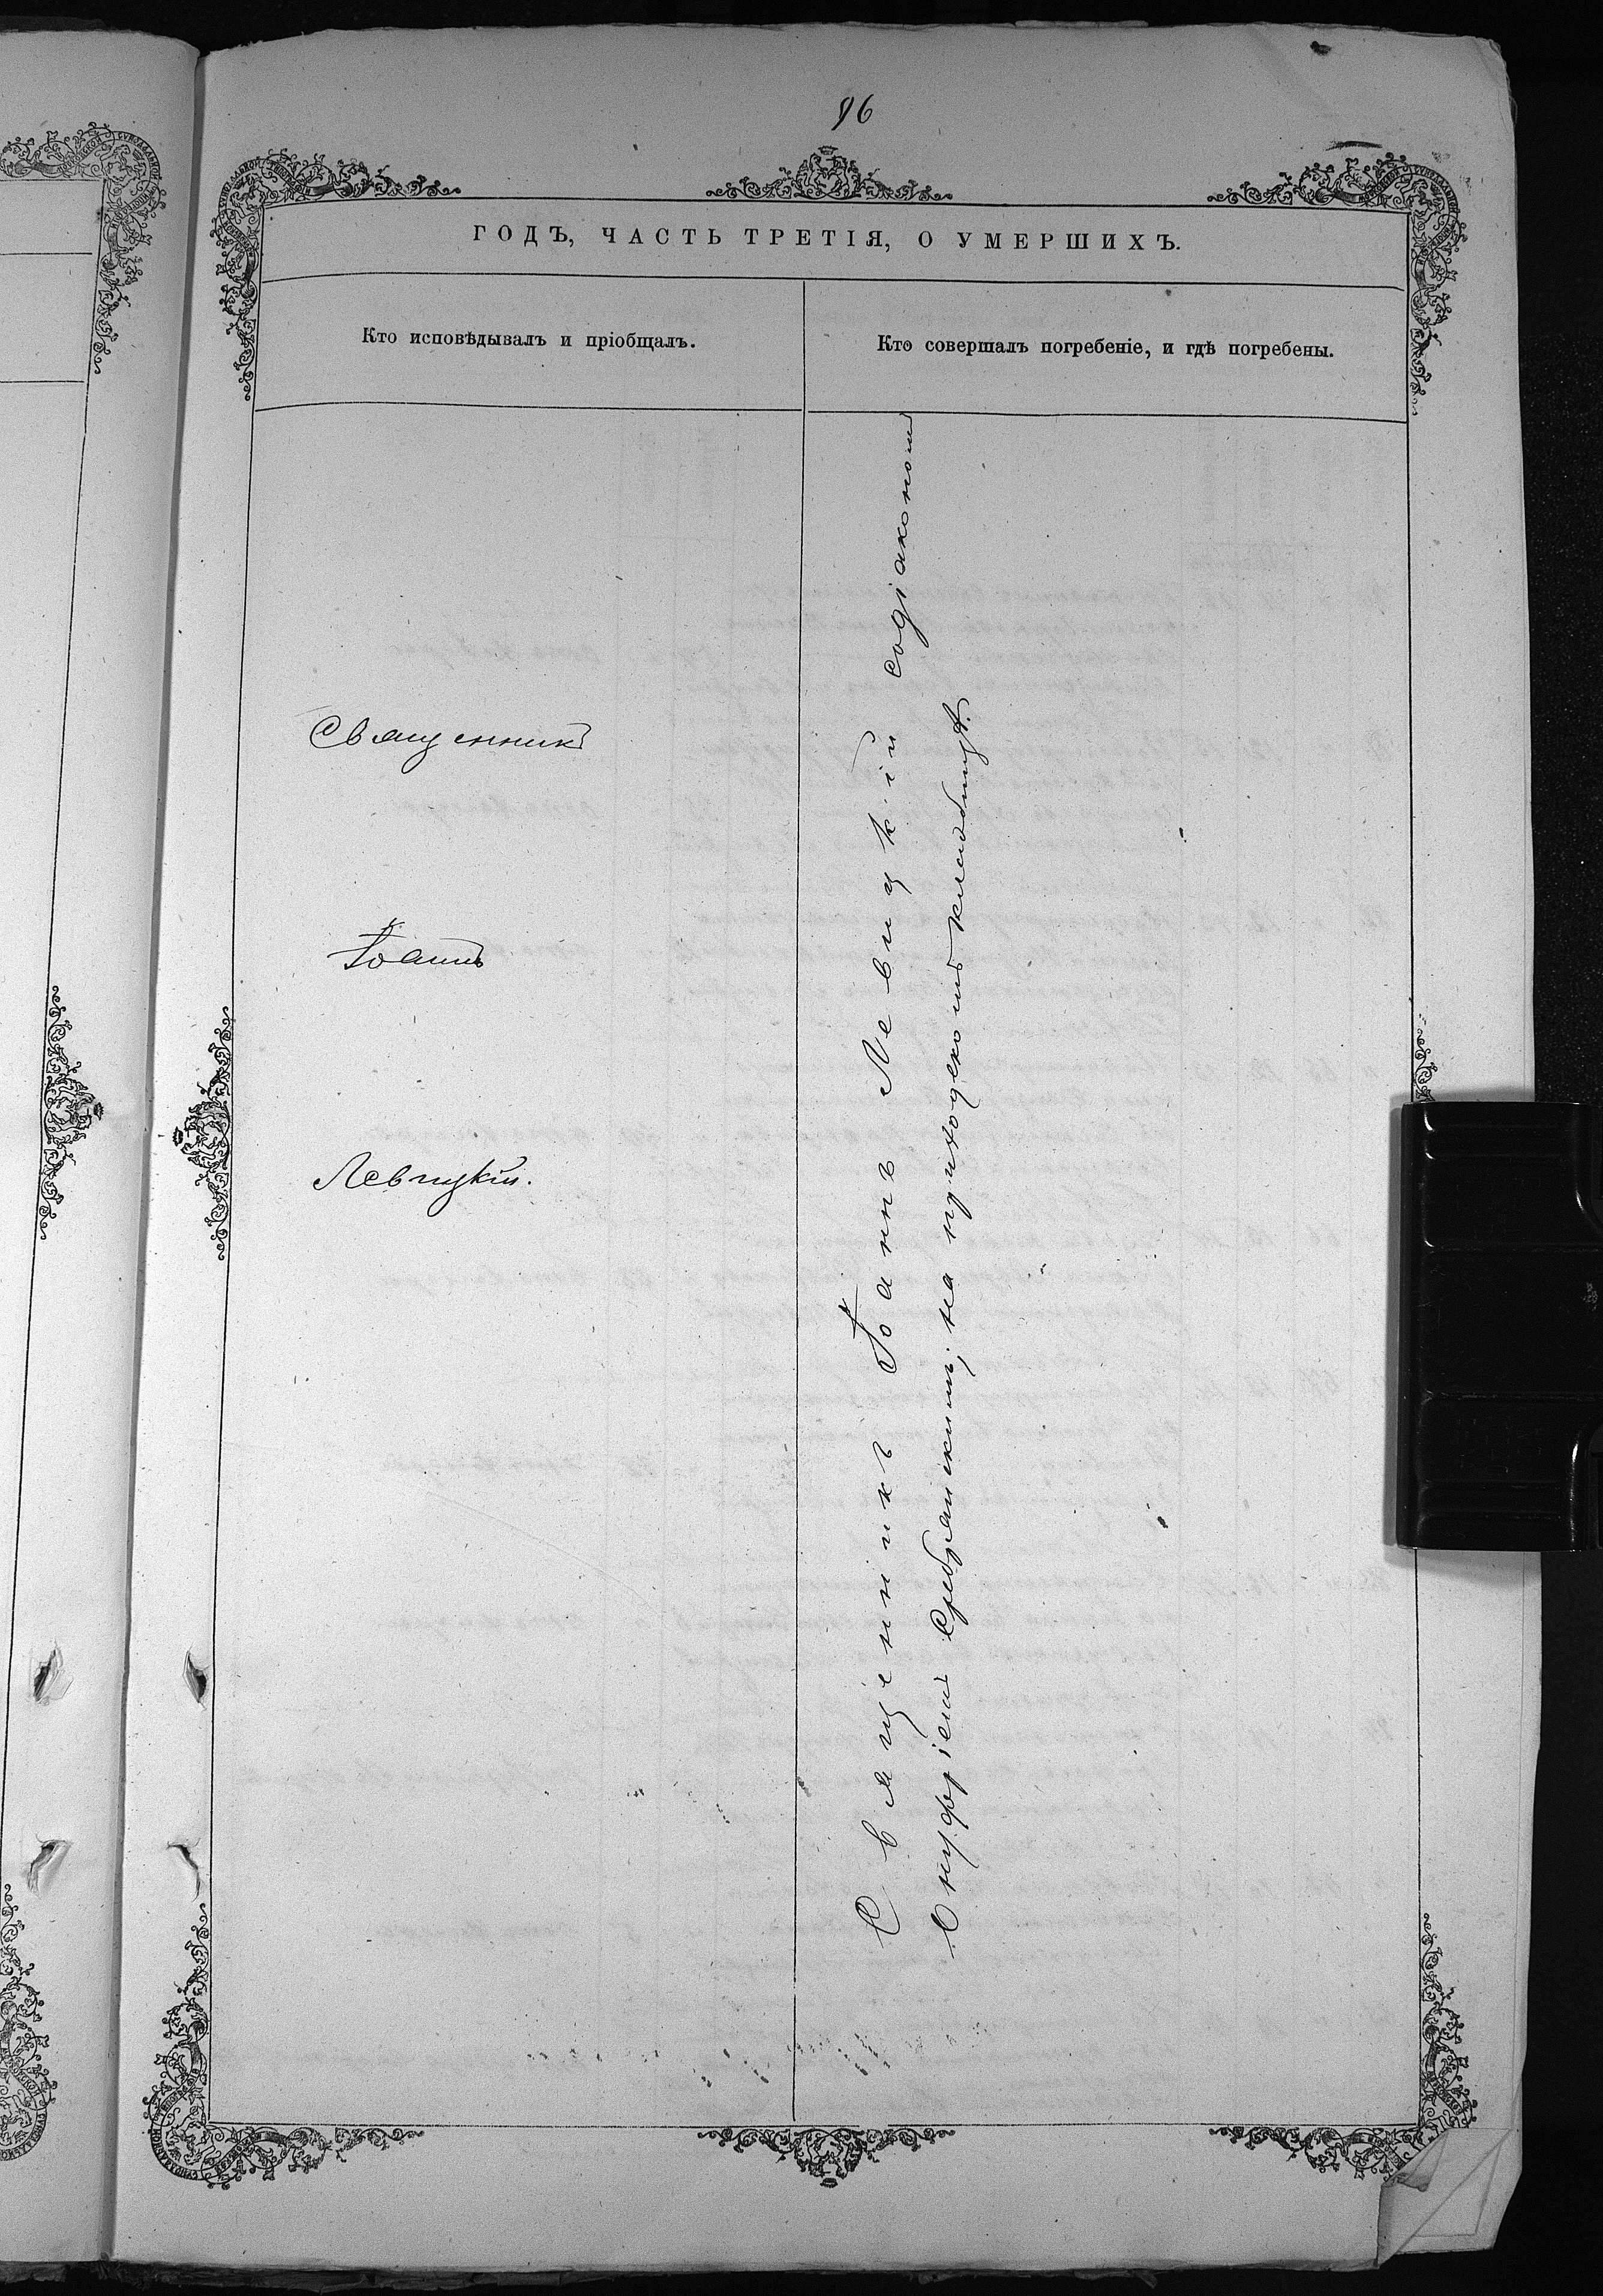 96
ГОДЪ, ЧАСТЬ ТРЕТІЯ, О УМЕРШИХЪ.
Кто исповѣдывалъ и пріобщалъ.
Кто совершалъ погребеніе, и гдѣ погребены.
Священникъ
Іоаннъ
Левицкій.
Священникъ Іоаннъ Левицкій содіакономъ
Онуфріемъ Средранскимъ, на приходскомъ кладбищѣ.